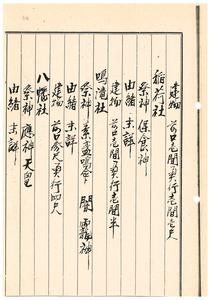 建物 前口壱間 奥行壱間壱尺
稲荷社
祭神 保食神
由緒 未詳
建物 前口壱間 奥行壱間半
鳴滝社
祭神 素盞嗚命 闇靇神
由緒 未詳
建物 前口五尺 奥行四尺
八幡社
祭神 應神天皇
由緒 未詳